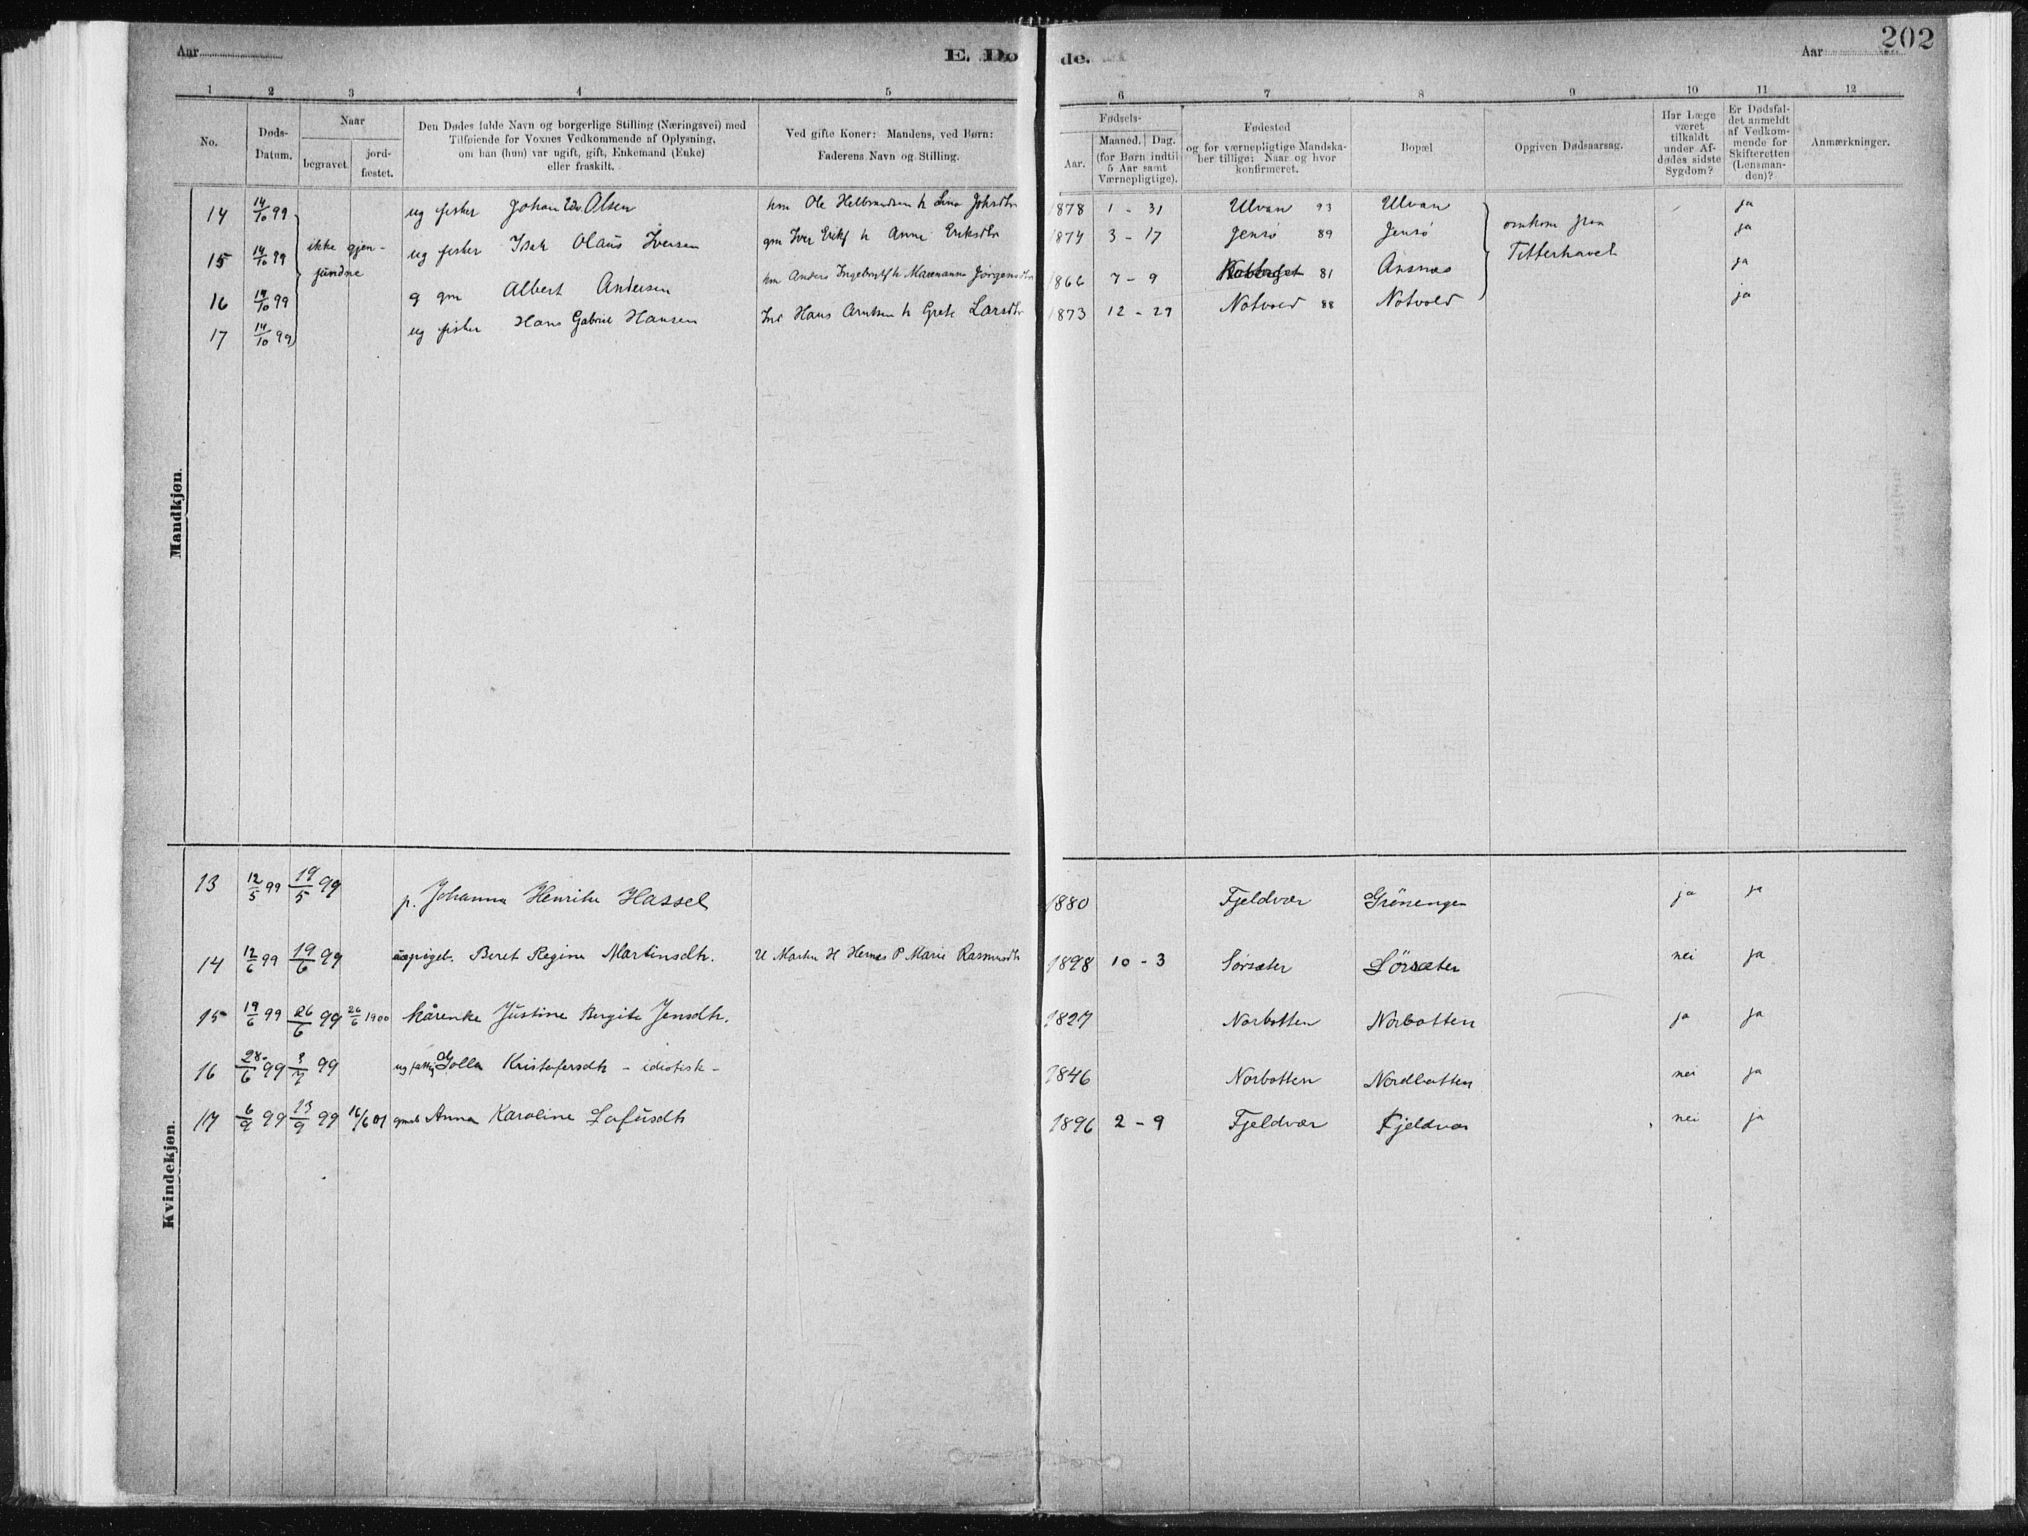 Aar
E. Dø de.
Aar
202
1 2 3 4 5 6 7 8 9 10 11 12
No.
Døds-
Datum.
Naar
begravet.
jord-
fæstet.
Den Dødes fulde Navn og borgerlige Stilling (Næringsvei) med
Tilføiende for Voxnes Vedkommende af Oplysning,
om han (hun) var ugift, gift, Enkemand (Enke)
eller fraskilt.
Ved gifte Koner: Mandens, ved Børn:
Faderens Navn og Stilling.
Fødsels-
Aar.
Maaned. Dag.
(for Børn indtil
5 Aar samt
Værnepligtige).
Fødested
og for værnepligtige Mandska-
ber tillige: Naar og hvor
konfirmeret.
Bopæl
Opgiven Dødsaarsag.
Har Læge
været
tilkaldt
under Af-
dødes sidste
Sygdom?
Er Dødsfal-
det anmeldt
af Vedkom-
mende for
Skifteretten
(Lensman-
den)?
Anmærkninger.
Mandkjøn.
14 14/10 99 ug fisker Johan Edv. Olsen Ole Helbrandsen h Lina Johsdtr 1878 1 - 31 Ulvan 93 Ulvan ja
15 14/10 99 ug fisker Isak Olaus Iversen gm Iver Eriks h Anne Eriksdtr 1874 3 - 17 Jensø 89 Jensø ja
ikke gjen-
fundne
omkom fra
Titterhavet
16 14/10 99 g gm Albert Andersen Anders Ingebrigts h Marianna Jørgensdtr 1866 7 - 9 81 Ansnæs ja
17 14/10 99 ug fisker Hans Gabriel Hansen Ind Hans Arntsen h Grete Larsdtr 1873 12 - 29 Notvold 88 Notvold ja
Kvindekjøn.
13 12/5 99 19/5 99 p. Johanna Henrike Hassel 1880 Fjeldvær Grønengen ja ja
14 12/6 99 19/6 99 pigeb. Beret Regine Martinsdtr. U Martin H Hernes P Marie Rasmusdtr 1898 10 - 3 Sørsæter Sörsæter nei ja
15 19/6 99 26/6 99 26/6 1900 kårenke Justine Bergite Jensdtr. 1827 Norbotten Norbotten ja ja
16 28/6 99 3/7 99 ug fattig Golla Kristofersdtr - idiotisk - 1846 Norbotten Nordbotten nei ja
17 6/9 99 13/9 99 16/6 01 Anna Karoline Lafusdtr 1896 2 - 9 Fjeldvær Fjeldvær nei ja